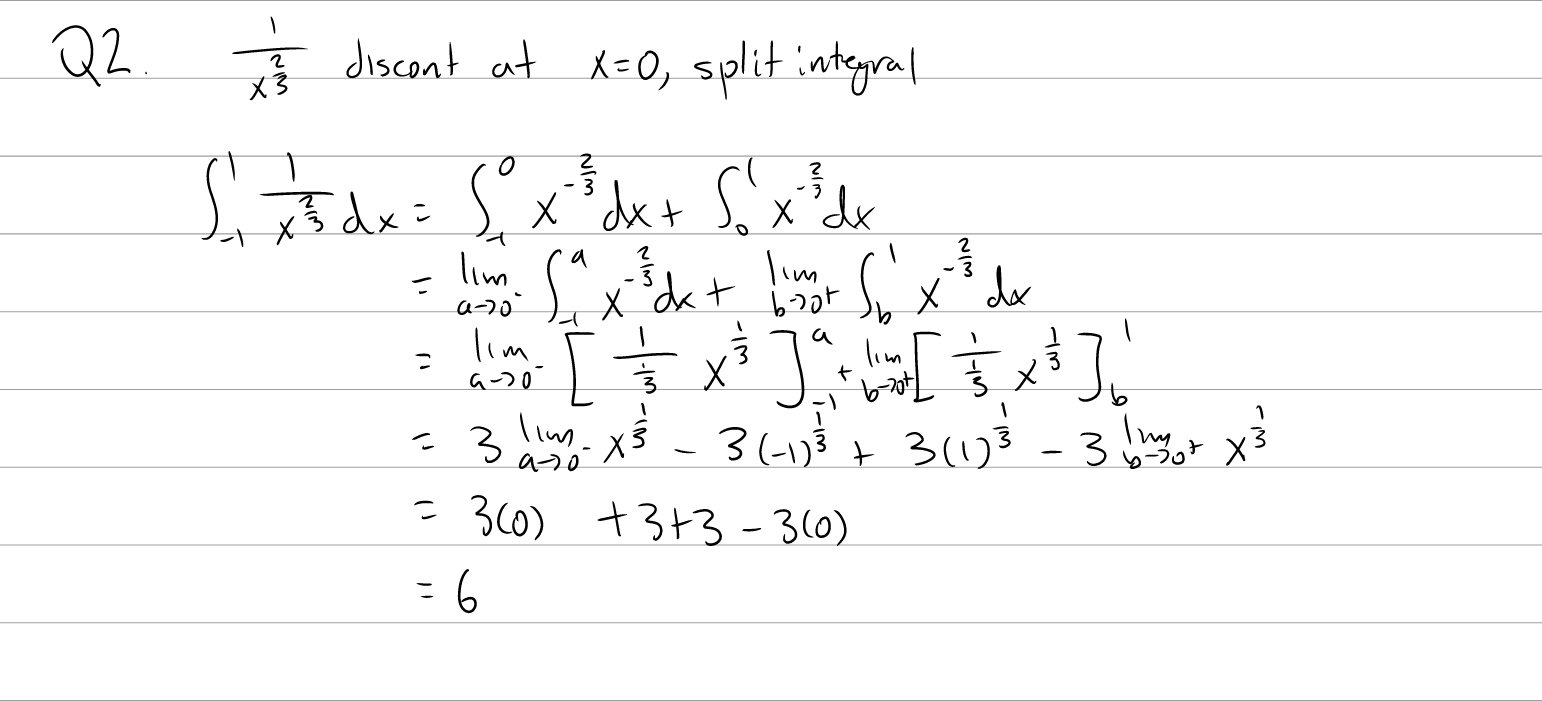 Q2. 1/x^(2/3) discont at x=0, split integral
∫_{-1}^{1} 1/x^(2/3) dx = ∫_{-1}^{0} x^(-2/3) dx + ∫_{0}^{1} x^(-2/3) dx
= lim_{a→0^-} ∫_{-1}^{a} x^(-2/3) dx + lim_{b→0^+} ∫_{b}^{1} x^(-2/3) dx
= lim_{a→0^-} [ 1/(1/3) x^(1/3) ]_{-1}^{a} + lim_{b→0^+} [ 1/(1/3) x^(1/3) ]_{b}^{1}
= 3 lim_{a→0^-} x^(1/3) - 3(-1)^(1/3) + 3(1)^(1/3) - 3 lim_{b→0^+} x^(1/3)
= 3(0) +3+3-3(0)
= 6